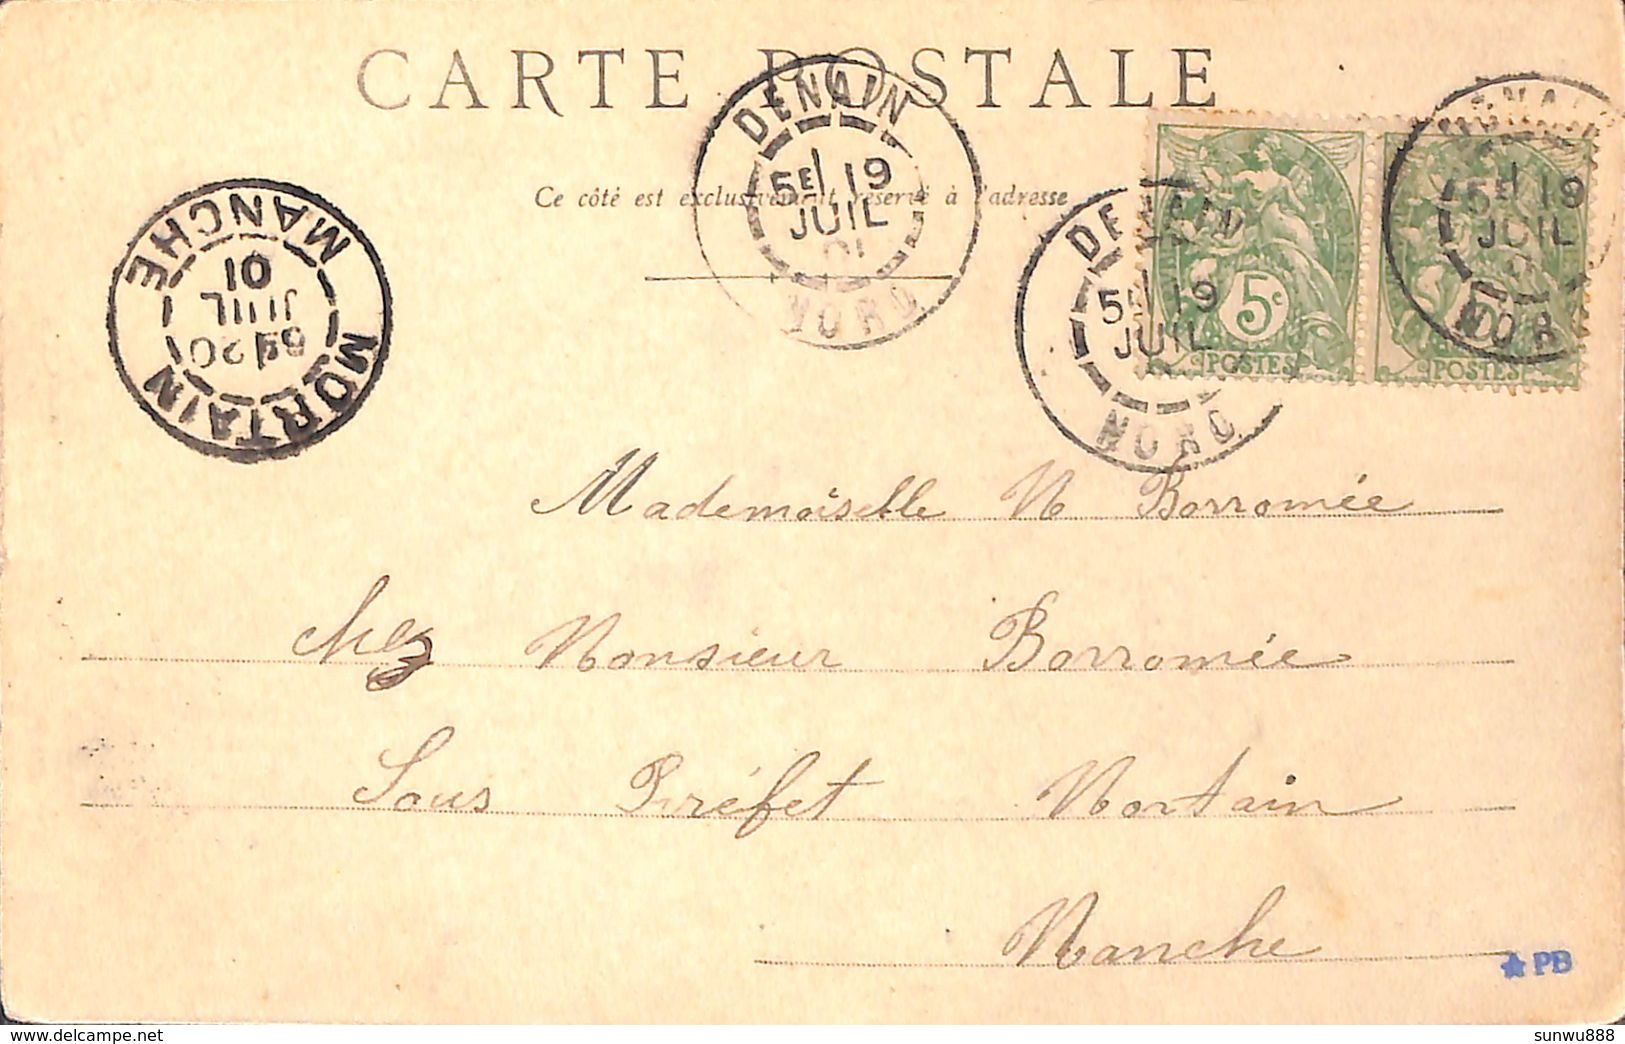 CARTE POSTALE
Ce côté est exclusivement réservé à l'adresse
DENAIN
5E 19
JUIL
01
NORD
DENAIN
5E 19
JUIL
NORD
DENAIN
5E 19
JUIL
NORD
5c
POSTES
POSTES
MORTAIN
20
JUIL
01
MANCHE
Mademoiselle M Borromée
chez Monsieur Borromée
Sous Préfet Mortain
Manche
PB
sunwu888